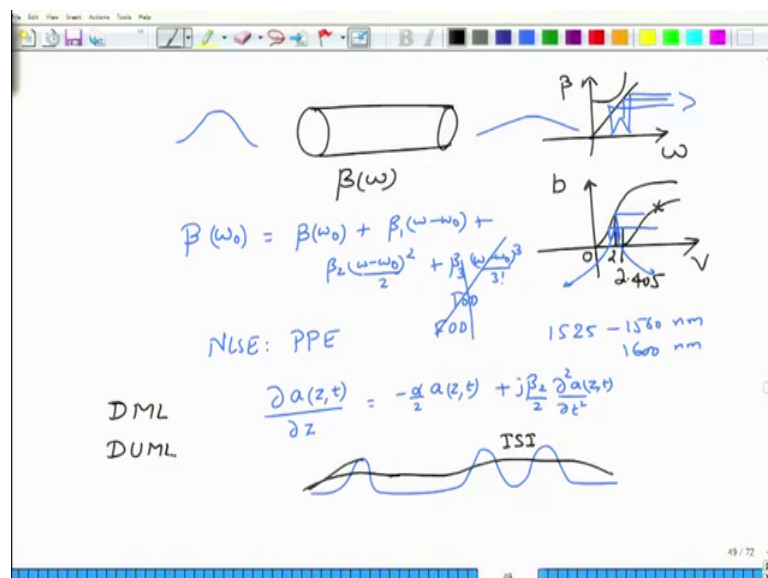 File Edit View Insert Actions Tools Help
B I
β
ω
β(ω)
b
0 2 2.405 V
β(ω₀) = β(ω₀) + β₁(ω-ω₀) +
β₂(ω-ω₀)²/2 + β₃(ω-ω₀)³/3!
TOD
FOD
1525 - 1560 nm
1600 nm
NLSE: PPE
∂a(z,t)/∂z = -α/2 a(z,t) + jβ₂/2 ∂²a(z,t)/∂t²
DML
DUML
ISI
49 / 72
49